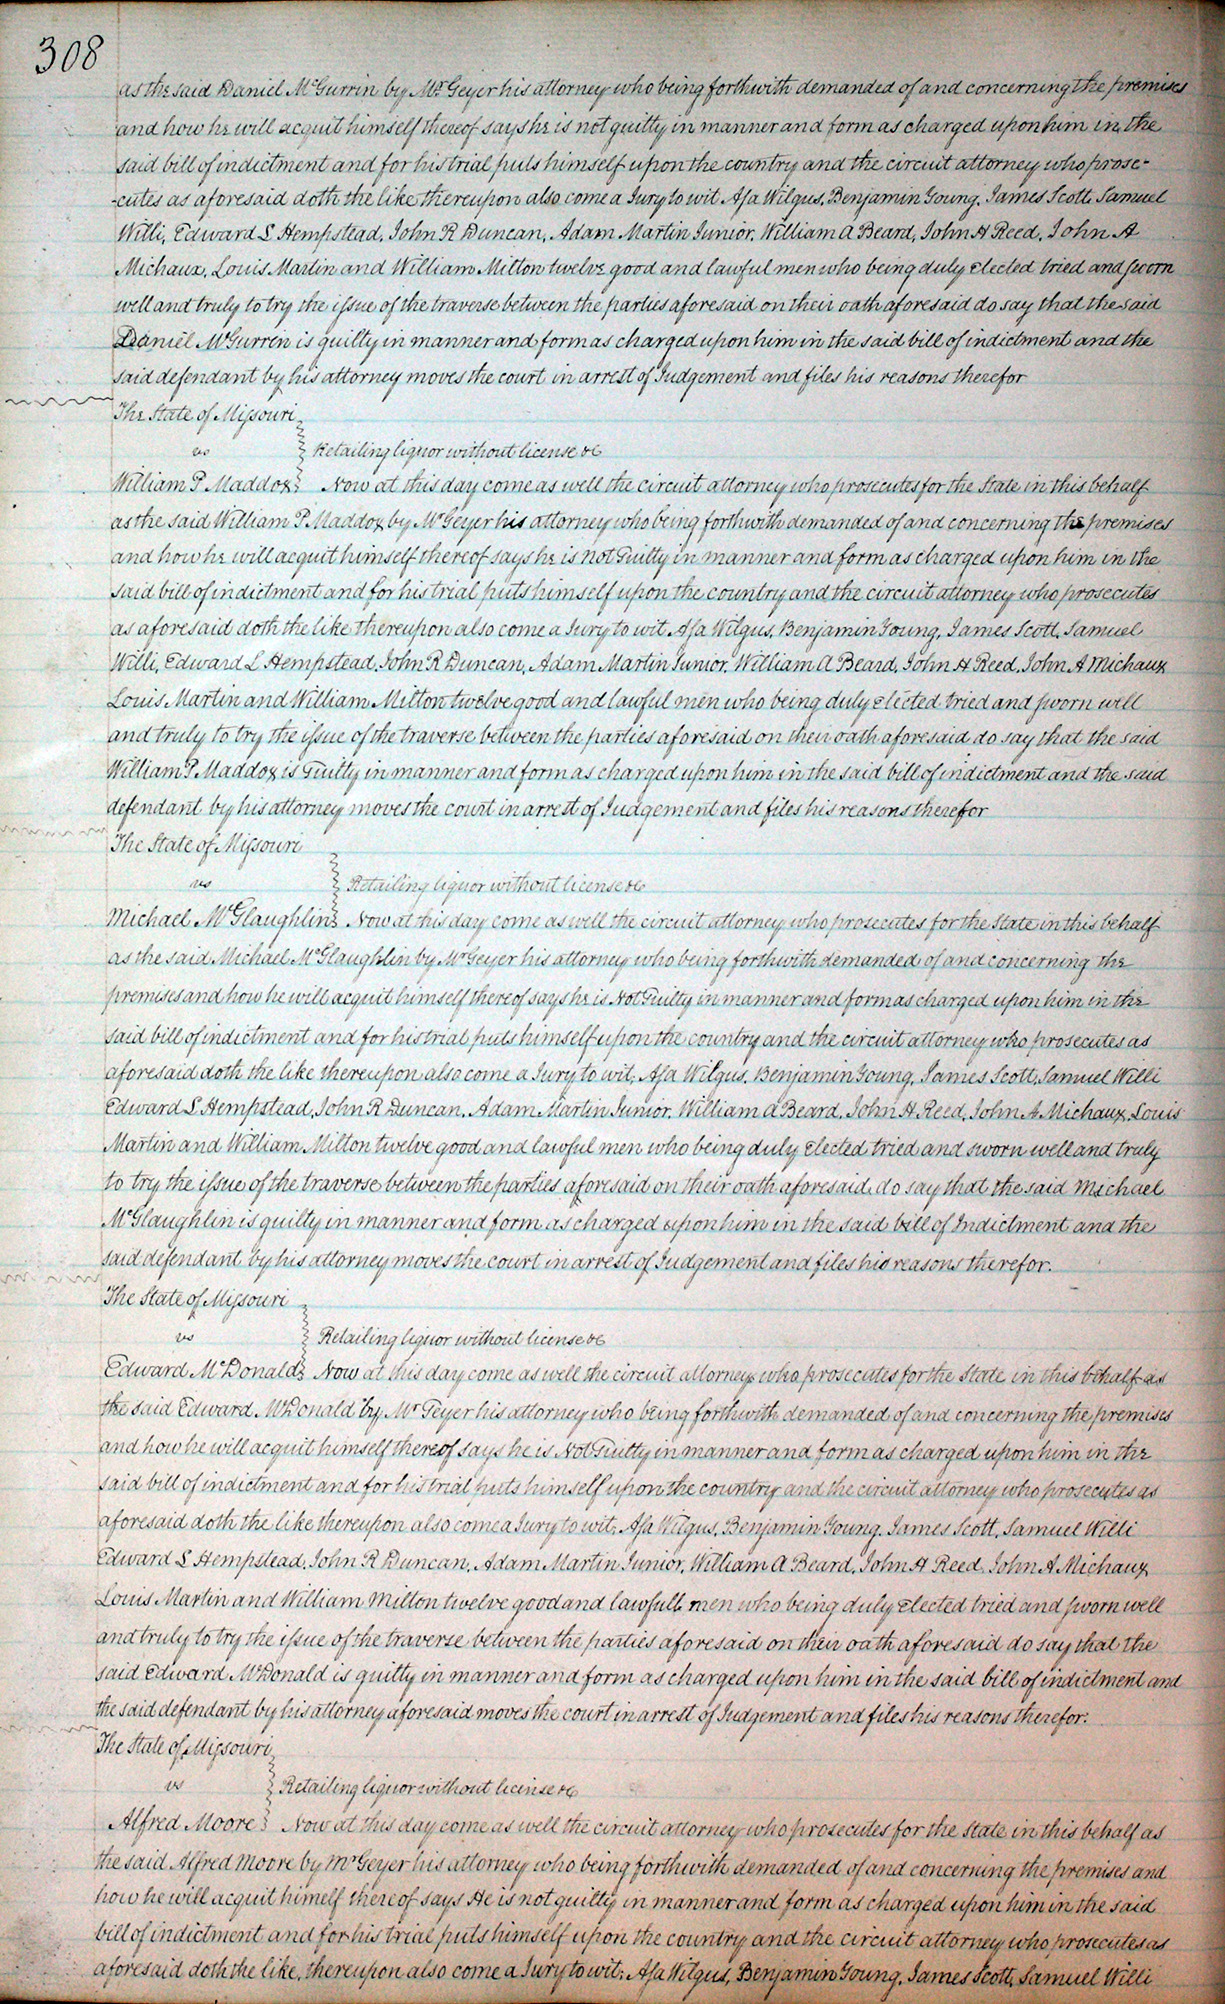 308
as the said Daniel McGurrin by Mr Geyer his attorney who being forthwith demanded of and concerning the premises
and how he will acquit himself thereof says he is not guilty in manner and form as charged upon him in the
said bill of indictment and for his trial puts himself upon the country and the circuit attorney who prose-
-cutes as aforesaid doth the like thereupon also come a Jury to wit Asa Wilgus, Benjamin Young, James Scott, Samuel
Willi, Edward L Hempstead, John R Duncan, Adam Martin Junior, William A Beard, John H Reed, John A
Michaux, Louis Martin and William Milton twelve good and lawful men who being duly elected tried and sworn
well and truly to try the issue of the traverse between the parties aforesaid on their oath aforesaid do say that the said
Daniel McGurrin is guilty in manner and form as charged upon him in the said bill of indictment and the
said defendant by his attorney moves the court in arrest of Judgement and files his reasons therefor
The State of Missouri
vs
Retailing liquor without license &c
William P. Maddox Now at this day come as well the circuit attorney who prosecutes for the State in this behalf
as the said William P. Maddox by Mr Geyer his attorney who being forthwith demanded of and concerning the premises
and how he will acquit himself thereof says he is not Guilty in manner and form as charged upon him in the
said bill of indictment and for his trial puts himself upon the country and the circuit attorney who prosecutes
as aforesaid doth the like thereupon also come a Jury to wit Asa Wilgus, Benjamin Young, James Scott, Samuel
Willi, Edward L Hempstead, John R Duncan, Adam Martin Junior, William A Beard, John H Reed, John A Michaux
Louis Martin and William Milton twelve good and lawful men who being duly elected tried and sworn well
and truly to try the issue of the traverse between the parties aforesaid on their oath aforesaid do say that the said
William P. Maddox is Guilty in manner and form as charged upon him in the said bill of indictment and the said
defendant by his attorney moves the court in arrest of Judgement and files his reasons therefor
The State of Missouri
vs
Retailing liquor without license &c
Michael McGlaughlin Now at this day come as well the circuit attorney who prosecutes for the State in this behalf
as the said Michael McGlaughlin by Mr Geyer his attorney who being forthwith demanded of and concerning the
premises and how he will acquit himself thereof says he is Not Guilty in manner and form as charged upon him in the
said bill of indictment and for his trial puts himself upon the country and the circuit attorney who prosecutes as
aforesaid doth the like thereupon also come a Jury to wit, Asa Wilgus, Benjamin Young, James Scott, Samuel Willi
Edward L Hempstead, John R Duncan, Adam Martin Junior, William A Beard, John H Reed, John A Michaux, Louis
Martin and William Milton twelve good and lawful men who being duly elected tried and sworn well and truly
to try the issue of the traverse between the parties aforesaid on their oath aforesaid do say that the said Michael
McGlaughlin is guilty in manner and form as charged upon him in the said bill of Indictment and the
said defendant by his attorney moves the court in arrest of Judgement and files his reasons therefor.
The State of Missouri
vs
Retailing liquor without license &c
Edward McDonald Now at this day come as well the circuit attorney who prosecutes for the State in this behalf as
the said Edward McDonald by Mr Geyer his attorney who being forthwith demanded of and concerning the premises
and how he will acquit himself thereof says he is Not Guilty in manner and form as charged upon him in the
said bill of indictment and for his trial puts himself upon the country and the circuit attorney who prosecutes as
aforesaid doth the like thereupon also come a Jury to wit, Asa Wilgus, Benjamin Young, James Scott, Samuel Willi
Edward L Hempstead, John R Duncan, Adam Martin Junior, William A Beard, John H Reed, John A Michaux
Louis Martin and William Milton twelve good and lawfull men who being duly elected tried and sworn well
and truly to try the issue of the traverse between the parties aforesaid on their oath aforesaid do say that the
said Edward McDonald is guilty in manner and form as charged upon him in the said bill of indictment and
the said defendant by his attorney aforesaid moves the court in arrest of Judgement and files his reasons therefor.
The State of Missouri
vs
Retailing liquor without license &c
Alfred Moore Now at this day come as well the circuit attorney who prosecutes for the State in this behalf as
the said Alfred Moore by Mr Geyer his attorney who being forthwith demanded of and concerning the premises and
how he will acquit himself thereof says He is not guilty in manner and form as charged upon him in the said
bill of indictment and for his trial puts himself upon the country and the circuit attorney who prosecutes as
aforesaid doth the like, thereupon also come a Jury to wit; Asa Wilgus, Benjamin Young, James Scott, Samuel Willi